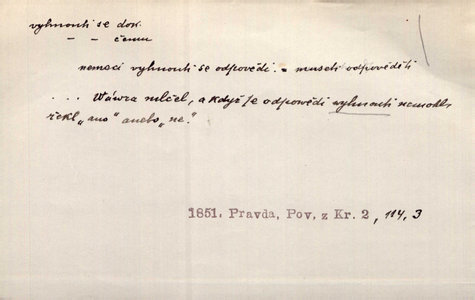 vyhnouti se dok.
– – čemu
nemoci vyhnouti se odpovědi. = museti odpověděti
... Wáwra mlčel, a když se odpowědi vyhnouti nemohl,
řekl „ „ anebo „ne."
1851. Pravda, Pov. z Kr. 2, 114, 3